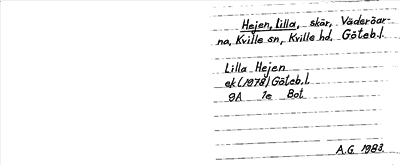 Hejen, Lilla, skär, Väderöar-
na, Kville sn, Kville hd, Göteb.l.
Lilla Hejen
ek (1978) Göteb.l.
9A 7e Bot
A.G. 1983.